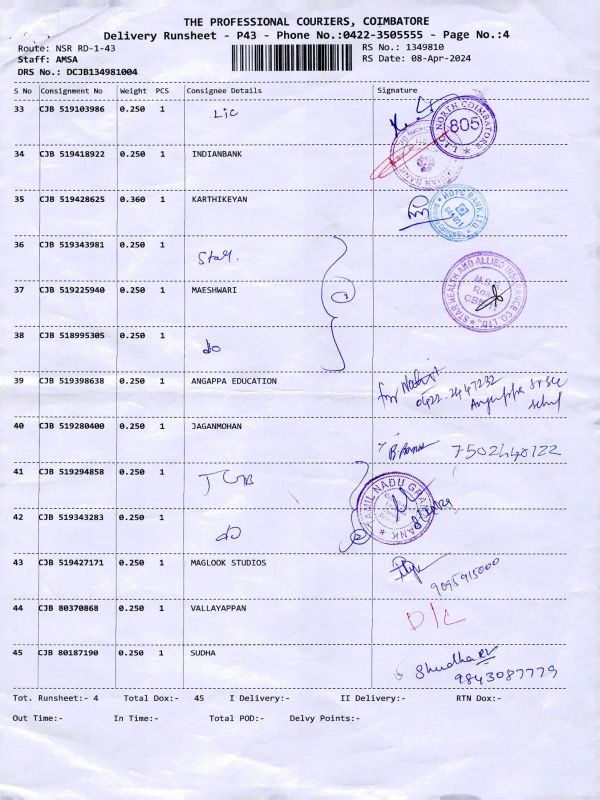 THE PROFESSIONAL COURIERS, COIMBATORE
Delivery Runsheet - P43 - Phone No.:0422-3505555 - Page No.:4
Route: NSR RD-1-43 RS No.: 1349810
Staff: AMSA RS Date: 08-Apr-2024
DRS No.: DCJB134981004
S No Consignment No Weight PCS Consignee Details Signature
33 CJB 519103986 0.250 1 Lic
NORTH COIMBATORE 805 L.I.C.
34 CJB 519418922 0.250 1 INDIANBANK
INDIAN BANK
35 CJB 519428625 0.360 1 KARTHIKEYAN
HDFC BANK LTD
36 CJB 519343981 0.250 1 Star.
37 CJB 519225940 0.250 1 MAESHWARI 3
STAR HEALTH AND ALLIED INSURANCE CO LTD. N.S.R. Road CBE-11
38 CJB 518995305 0.250 1 do
39 CJB 519398638 0.250 1 ANGAPPA EDUCATION for
0422-2447232
40 CJB 519280400 0.250 1 JAGANMOHAN 7502448122
41 CJB 519294858 0.250 1 TGB
TAMIL NADU GRAMA BANK
42 CJB 519343283 0.250 1 do 2
43 CJB 519427171 0.250 1 MAGLOOK STUDIOS
9095915000
44 CJB 80370868 0.250 1 VALLAYAPPAN D/L
45 CJB 80187190 0.250 1 SUDHA Shudha
9843087779
Tot. Runsheet:- 4 Total Dox:- 45 I Delivery:- II Delivery:- RTN Dox:-
Out Time:- In Time:- Total POD:- Delvy Points:-